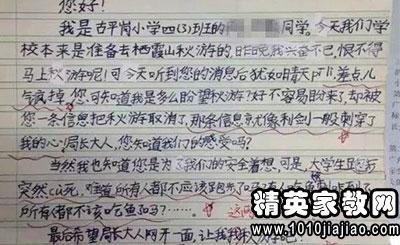 您好！
我是古平岗小学四（3）班的 同学，今天我们学
校本来是准备去栖霞山秋游的，昨晚我兴奋不已，恨不得
马上秋游呢！可今天听到您的消息后犹如晴天pīlì，差点儿
气疯掉。您可知道我是多么盼望秋游？好不容易盼来了，却被
您一条信息把秋游取消了，那条信息就像利剑一般刺穿了
我的心。局长大人，您知道我们的感受吗？
当然我也知道您是为了我们的安全着想，可是，大学生跑步
突然cù死，难道所有人都不应该跑步了
所有人都不该吃鱼了吗？……。这
最后希望局长大人网开一面，让我们秋游
精英家教网
www.1010jiajiao.com